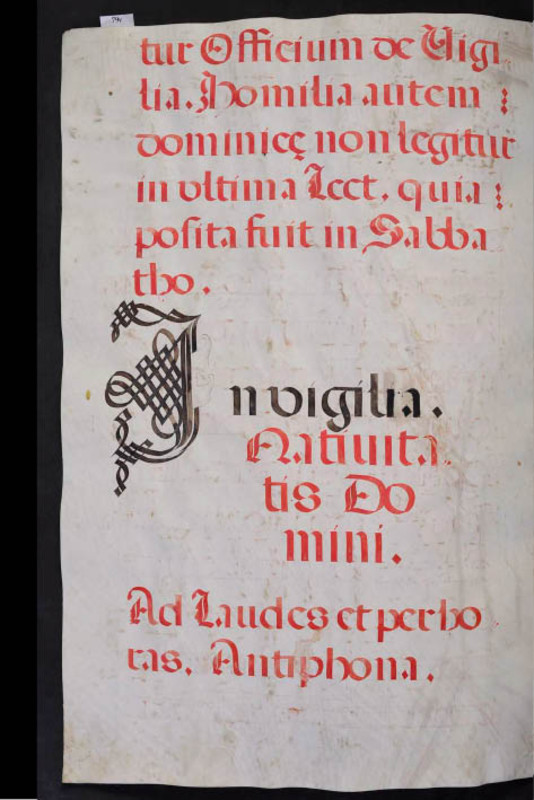 tur Officium de Uigi
lia. Homilia autem
dominicę non legitur
in vltima Lect. quia
posita fuit in Sabba
tho.
In vigilia.
Natiuita
tis Do
mini.
Ad Laudes et per ho
ras. Antiphona.